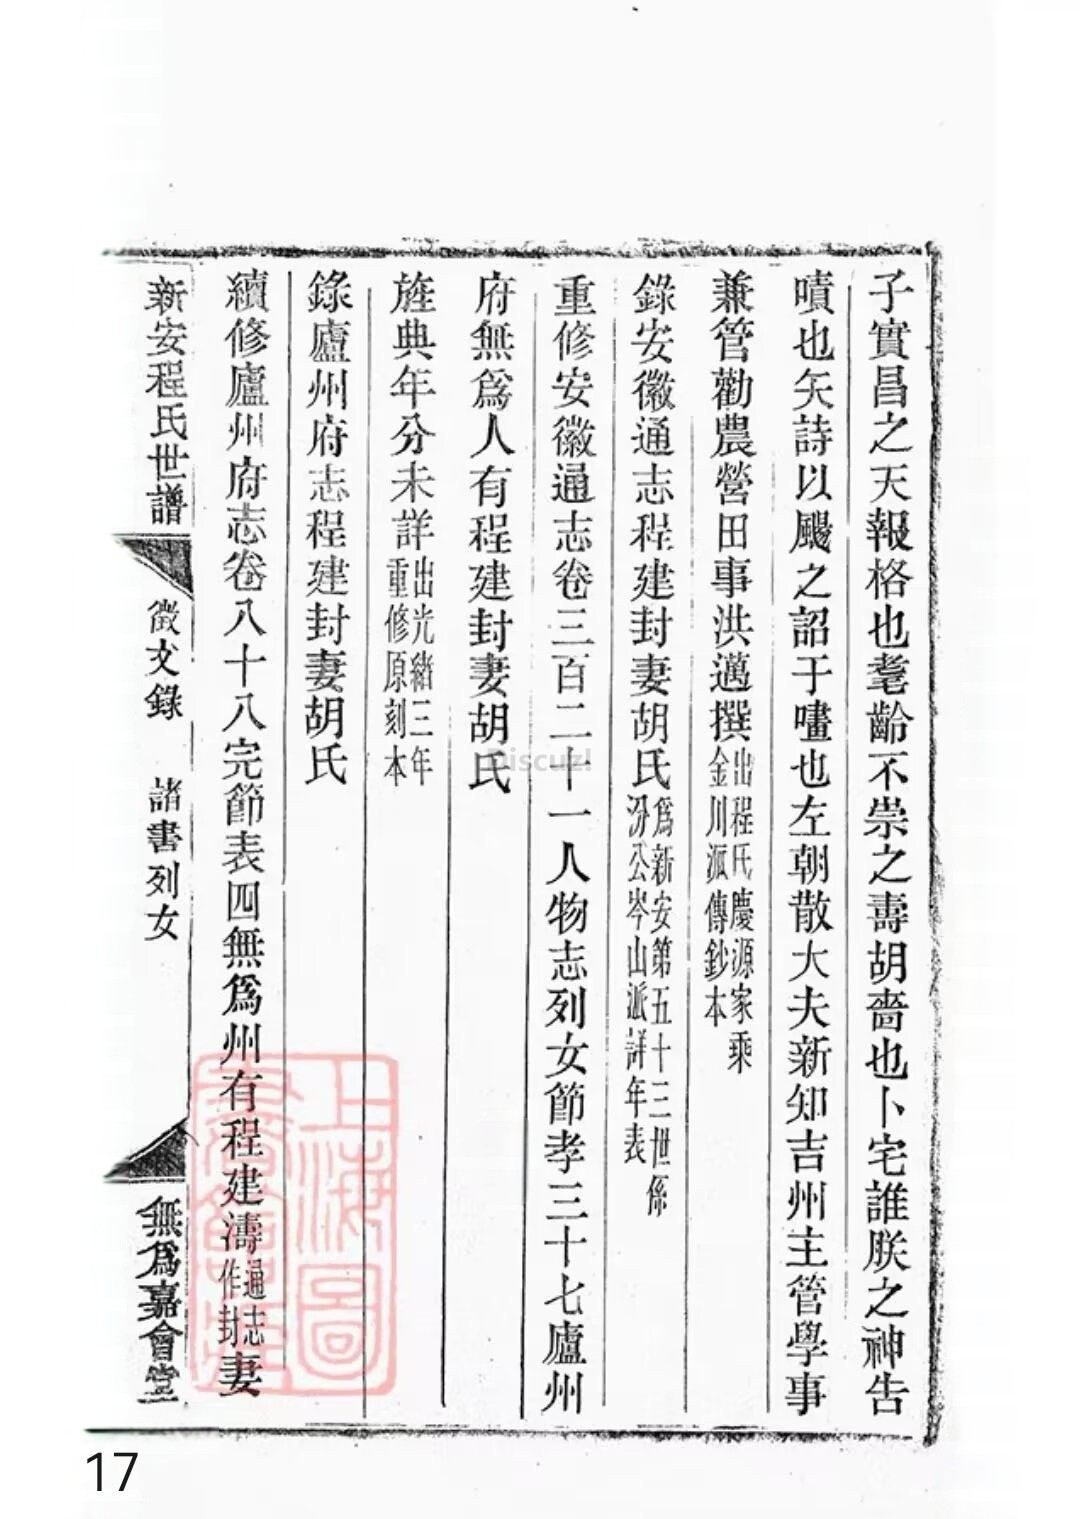 子實昌之天報格也耄齡不崇之壽胡嗇也卜宅誰朕之神告
嘖也矢詩以颺之詔于嚍也左朝散大夫新知吉州主管學事
兼管勸農營田事洪邁撰出程氏慶源家乘金川派傳鈔本
錄安徽通志程建封妻胡氏為新安第五十三世係汾公岑山派詳年表
重修安徽通志卷三百二十一人物志列女節孝三十七廬州
府無為人有程建封妻胡氏
旌典年分未詳出光緒三年重修原刻本
錄廬州府志程建封妻胡氏
續修廬州府志卷八十八完節表四無為州有程建濤通志作封妻
新安程氏世譜 徵文錄 諸書列女 無為嘉會堂
上海圖書館藏
Discuz!
17